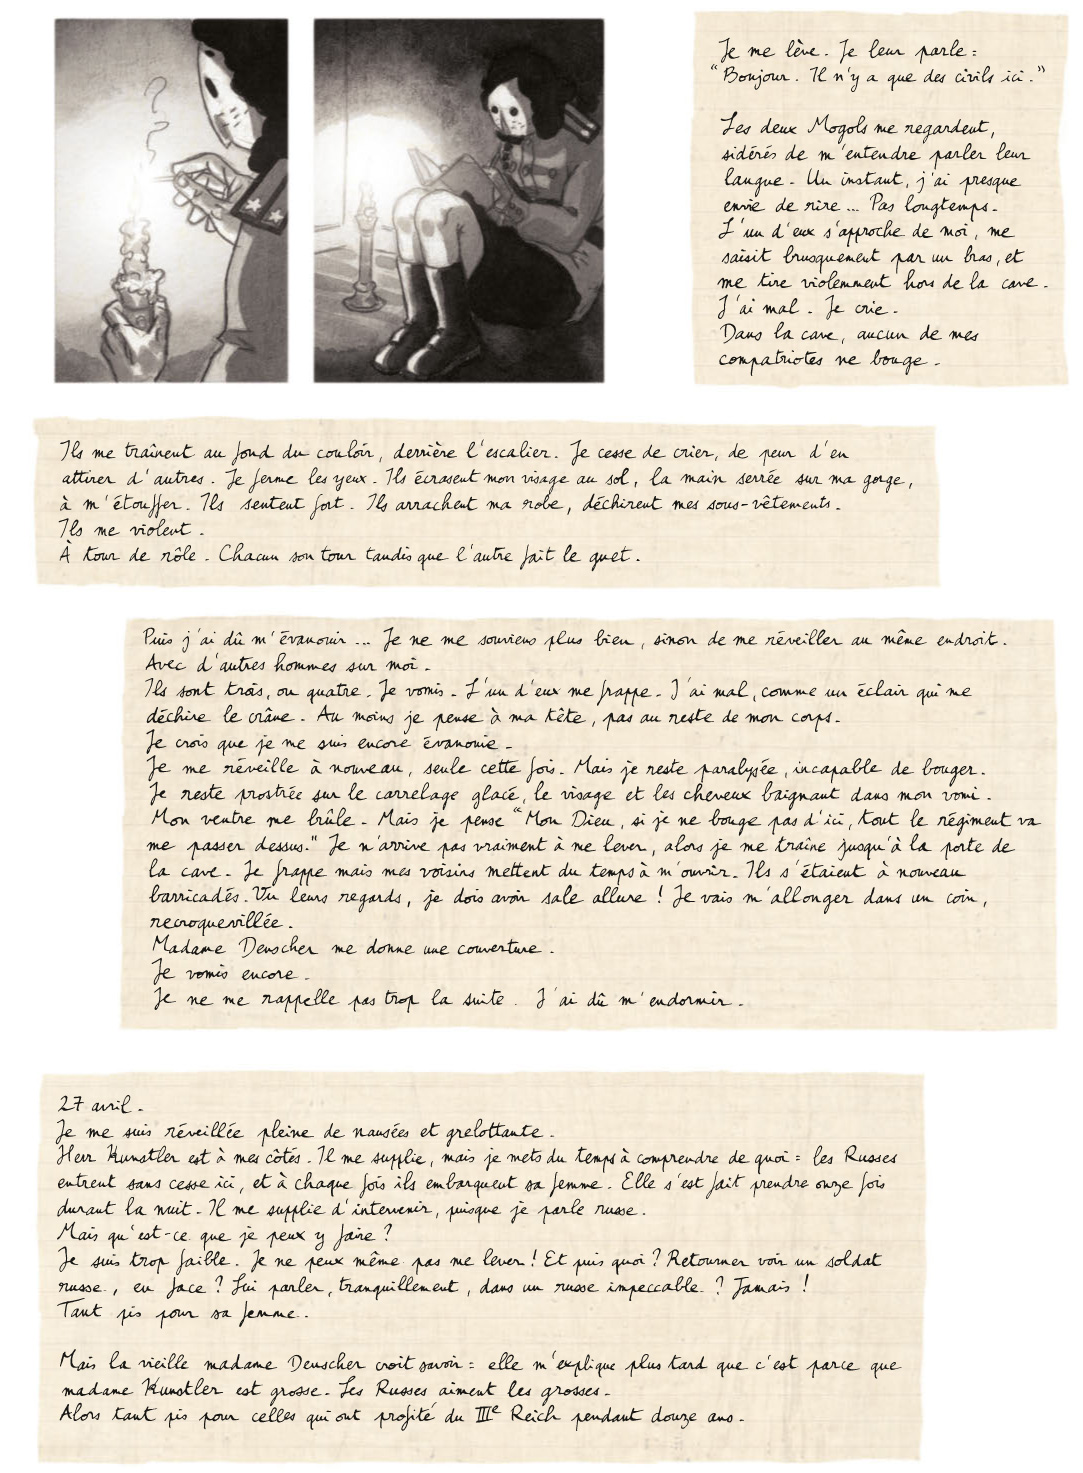 ? ?
Je me lève. Je leur parle :
"Bonjour. Il n'y a que des civils ici."
Les deux Mogols me regardent,
sidérés de m'entendre parler leur
langue. Un instant, j'ai presque
envie de rire... Pas longtemps.
L'un d'eux s'approche de moi, me
saisit brusquement par un bras, et
me tire violemment hors de la cave.
J'ai mal. Je crie.
Dans la cave, aucun de mes
compatriotes ne bouge.
Ils me traînent au fond du couloir, derrière l'escalier. Je cesse de crier, de peur d'en
attirer d'autres. Je ferme les yeux. Ils écrasent mon visage au sol, la main serrée sur ma gorge,
à m'étouffer. Ils sentent fort. Ils arrachent ma robe, déchirent mes sous-vêtements.
Ils me violent.
À tour de rôle. Chacun son tour tandis que l'autre fait le guet.
Puis j'ai dû m'évanouir... Je ne me souviens plus bien, sinon de me réveiller au même endroit.
Avec d'autres hommes sur moi.
Ils sont trois, ou quatre. Je vomis. L'un d'eux me frappe. J'ai mal, comme un éclair qui me
déchire le crâne. Au moins je pense à ma tête, pas au reste de mon corps.
Je crois que je me suis encore évanouie.
Je me réveille à nouveau, seule cette fois. Mais je reste paralysée, incapable de bouger.
Je reste prostrée sur le carrelage glacé, le visage et les cheveux baignant dans mon vomi.
Mon ventre me brûle. Mais je pense "Mon Dieu, si je ne bouge pas d'ici, tout le régiment va
me passer dessus." Je n'arrive pas vraiment à me lever, alors je me traîne jusqu'à la porte de
la cave. Je frappe mais mes voisins mettent du temps à m'ouvrir. Ils s'étaient à nouveau
barricadés. Vu leurs regards, je dois avoir sale allure ! Je vais m'allonger dans un coin,
recroquevillée.
Madame Deuscher me donne une couverture.
Je vomis encore.
Je ne me rappelle pas trop la suite. J'ai dû m'endormir.
27 avril.
Je me suis réveillée pleine de nausées et grelottante.
Herr Kunstler est à mes côtés. Il me supplie, mais je mets du temps à comprendre de quoi : les Russes
entrent sans cesse ici, et à chaque fois ils embarquent sa femme. Elle s'est fait prendre onze fois
durant la nuit. Il me supplie d'intervenir, puisque je parle russe.
Mais qu'est-ce que je peux y faire ?
Je suis trop faible. Je ne peux même pas me lever ! Et puis quoi ? Retourner voir un soldat
russe, en face ? Lui parler, tranquillement, dans un russe impeccable ? Jamais !
Tant pis pour sa femme.
Mais la vieille madame Deuscher croit savoir : elle m'explique plus tard que c'est parce que
madame Kunstler est grosse. Les Russes aiment les grosses.
Alors tant pis pour celles qui ont profité du IIIe Reich pendant douze ans.